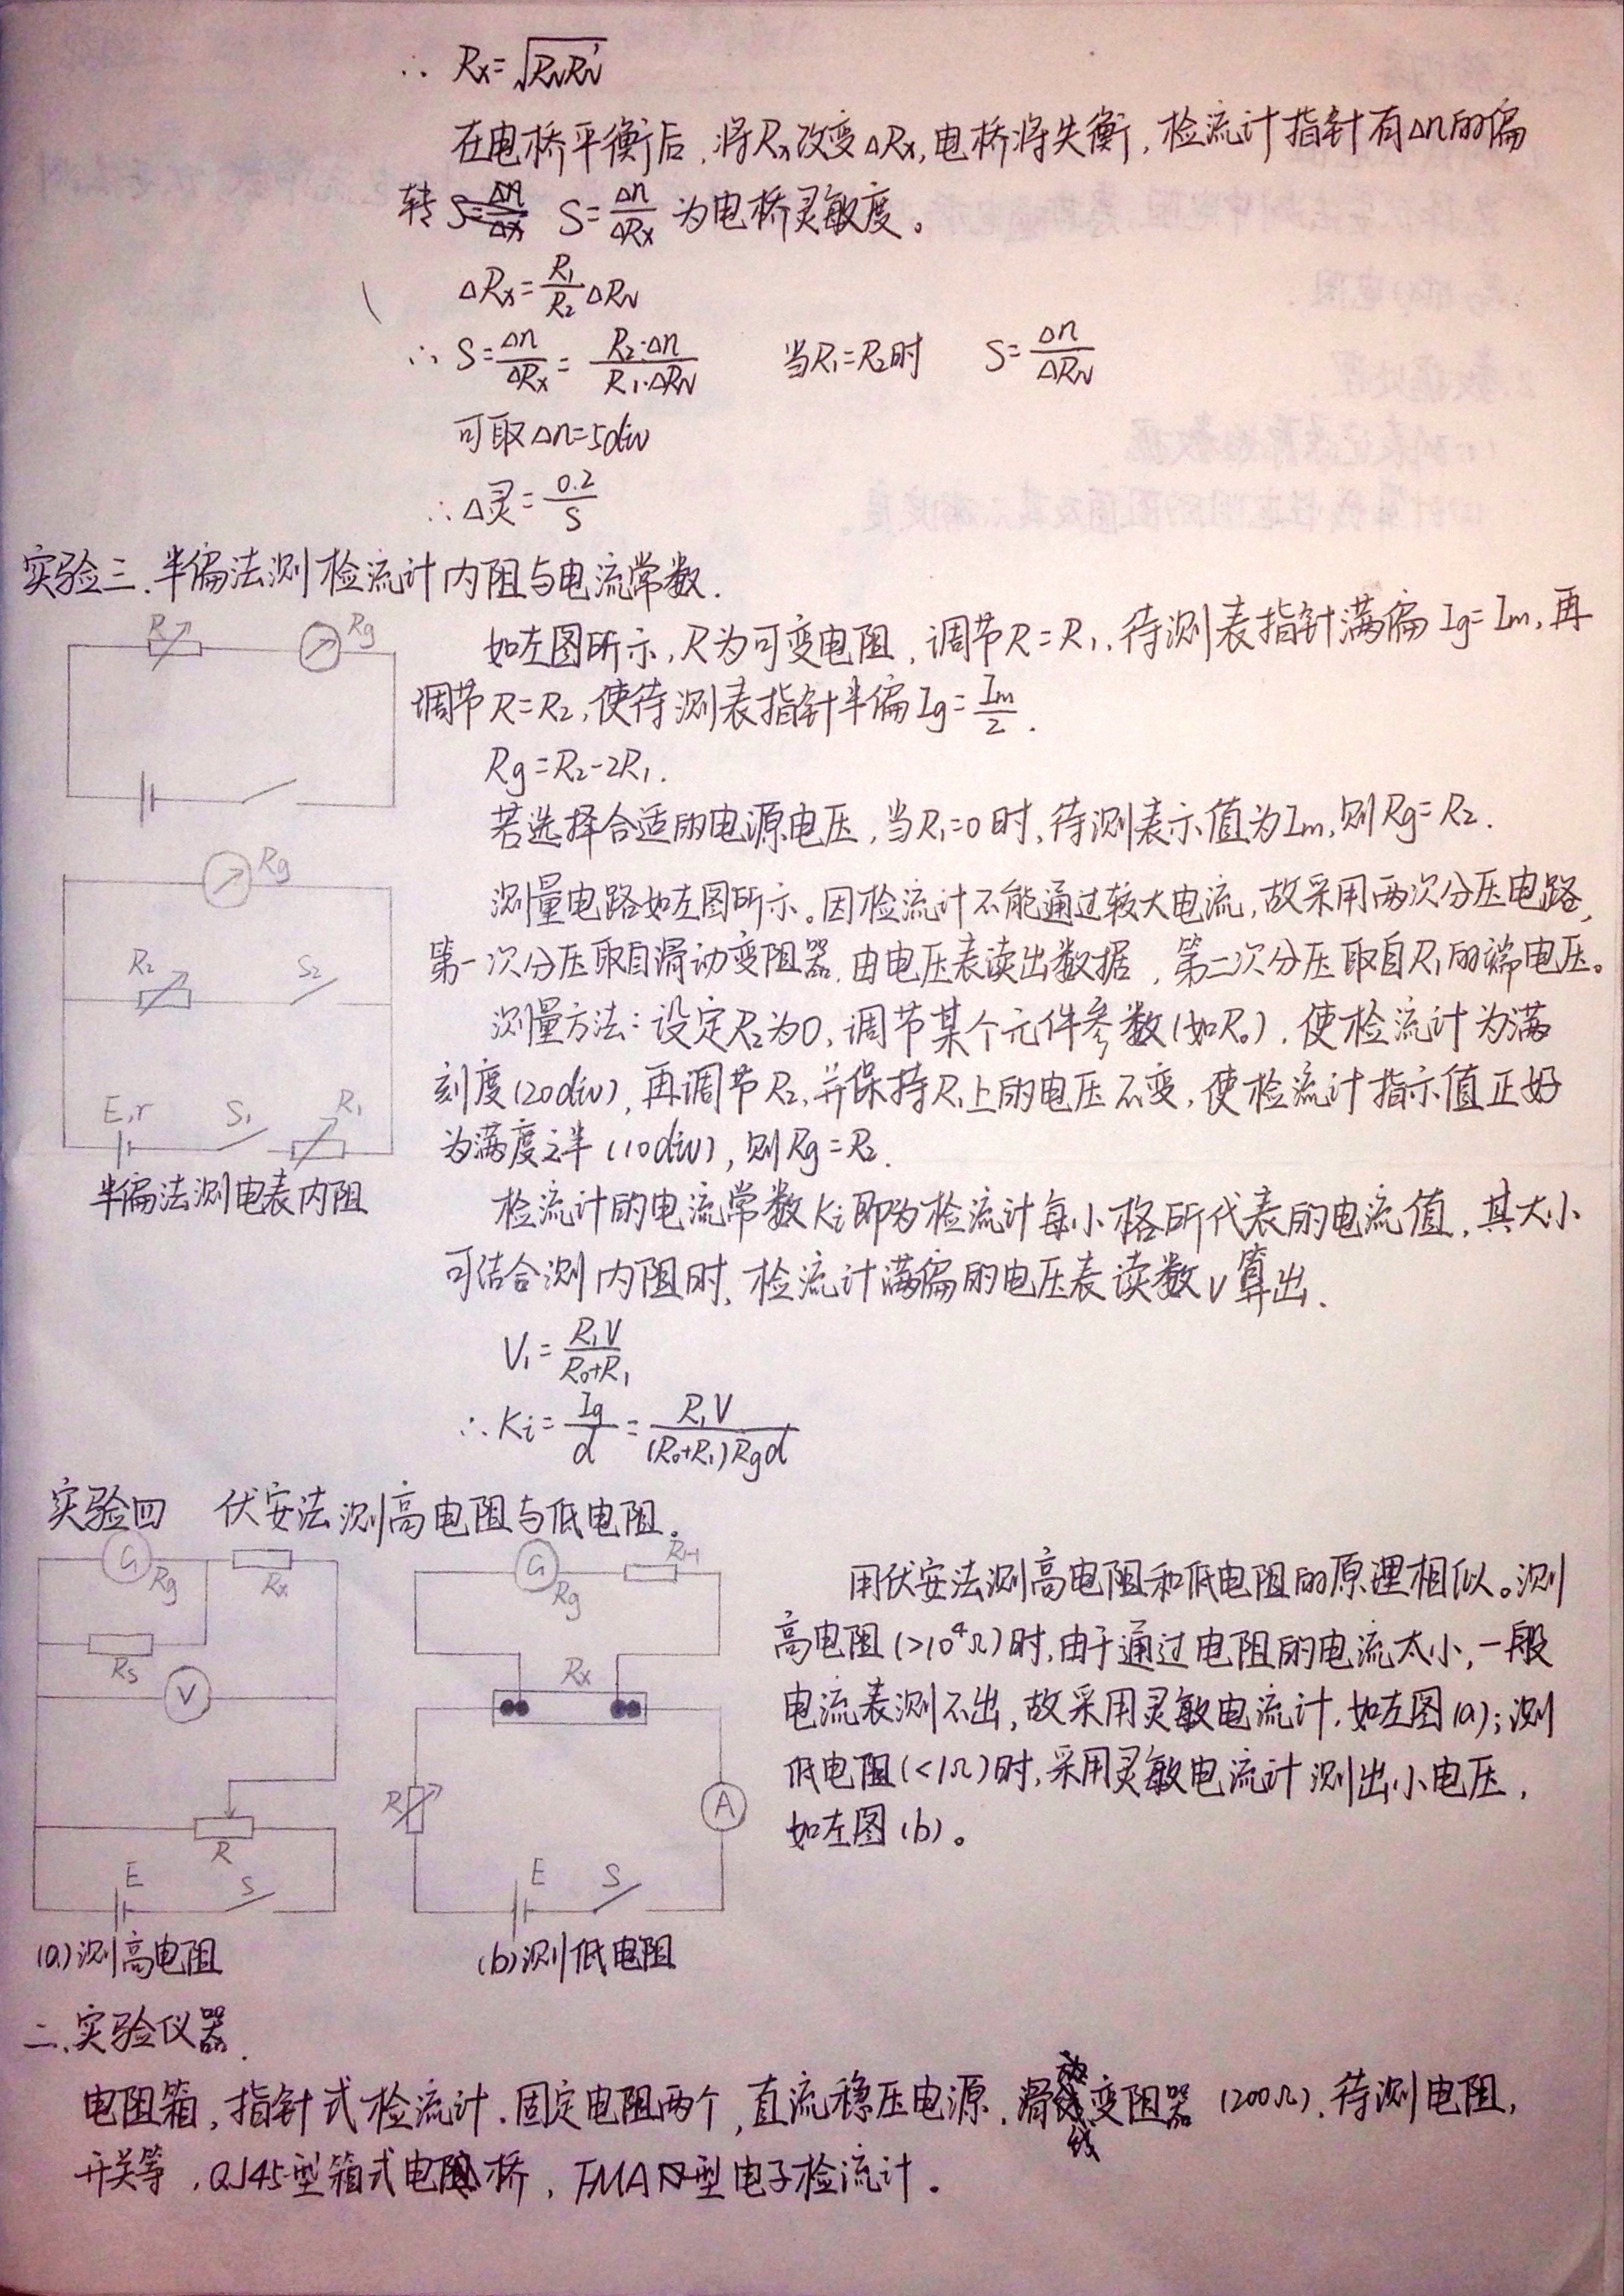 ∴ Rx=√(RN RN')
在电桥平衡后,将Rx改变△Rx,电桥将失衡,检流计指针有△n的偏
转 S=△n/△Rx 为电桥灵敏度。
△Rx=R1/R2 △RN
∴ S=△n/△Rx=R2·△n/R1·△RN 当R1=R2时 S=△n/△RN
可取△n=5div
∴△灵=0.2/S
实验三.半偏法测检流计内阻与电流常数.
R Rg
如左图所示,R为可变电阻,调节R=R1,待测表指针满偏Ig=Im,再
调节R=R2,使待测表指针半偏Ig=Im/2.
Rg=R2-2R1.
若选择合适的电源电压,当R1=0时,待测表示值为Im,则Rg=R2.
Rg
R2 S2
E,r S1 R1
半偏法测电表内阻
测量电路如左图所示。因检流计不能通过较大电流,故采用两次分压电路,
第一次分压取自滑动变阻器,由电压表读出数据,第二次分压取自R1的端电压。
测量方法:设定R2为0,调节某个元件参数(如R0),使检流计为满
刻度(20div),再调节R2,并保持R1上的电压不变,使检流计指示值正好
为满度之半(10div),则Rg=R2.
检流计的电流常数Ki即为检流计每小格所代表的电流值,其大小
可结合测内阻时,检流计满偏的电压表读数V算出.
V1=R1V/(R0+R1)
∴Ki=Ig/d=R1V/(R0+R1)Rgd
实验四 伏安法测高电阻与低电阻.
G Rg Rx
Rs
V
R
E S
(a)测高电阻
G Rg RH
Rx
R A
E S
(b)测低电阻
用伏安法测高电阻和低电阻的原理相似。测
高电阻(>10⁴Ω)时,由于通过电阻的电流太小,一般
电流表测不出,故采用灵敏电流计,如左图(a);测
低电阻(<1Ω)时,采用灵敏电流计测出小电压,
如左图(b)。
二.实验仪器.
电阻箱,指针式检流计.固定电阻两个,直流稳压电源,滑线变阻器(200Ω),待测电阻,
开关等,QJ45型箱式电桥,型电子检流计.